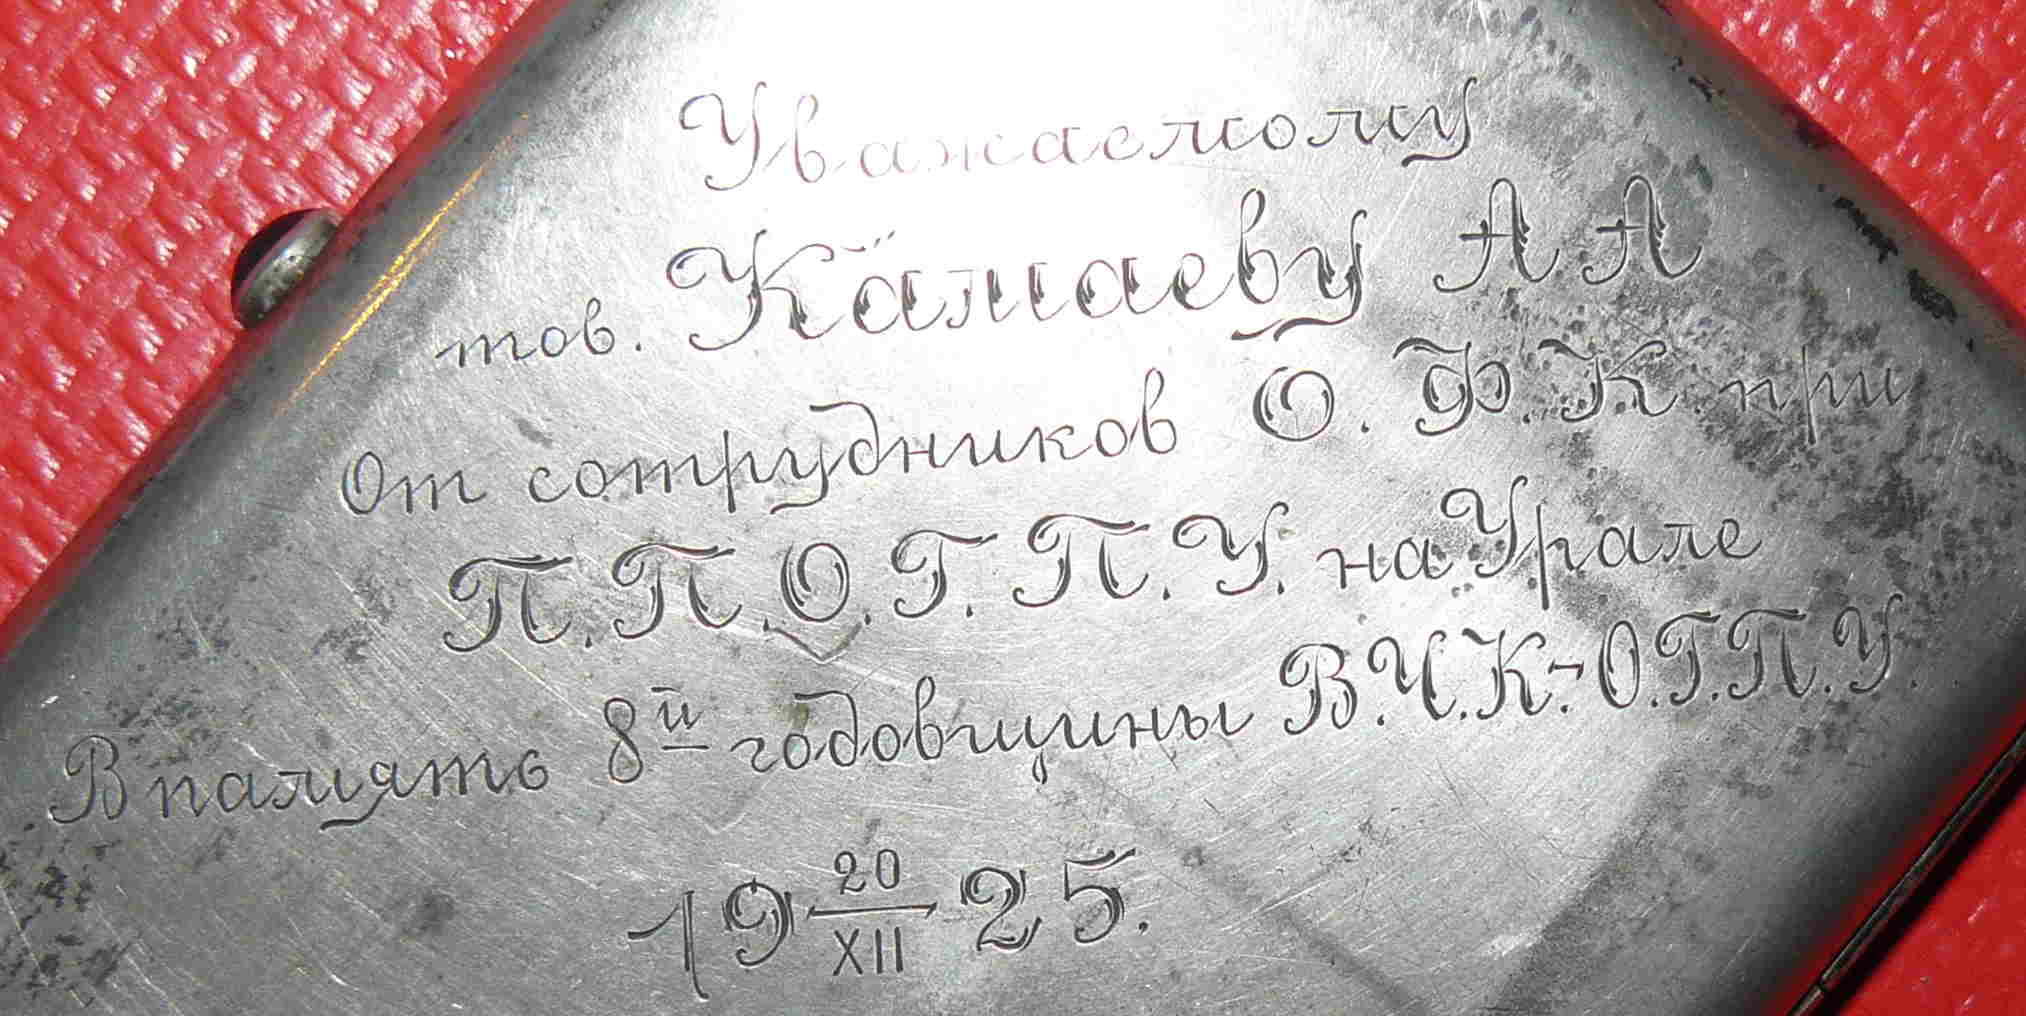 Уважаемому
тов. Камаеву А А
От сотрудников О. Ф. К при
П. П. О. Г. П. У. на Урале
В память 8й годовщины В.Ч.К-О.Г.П.У.
19 20/XII 25.